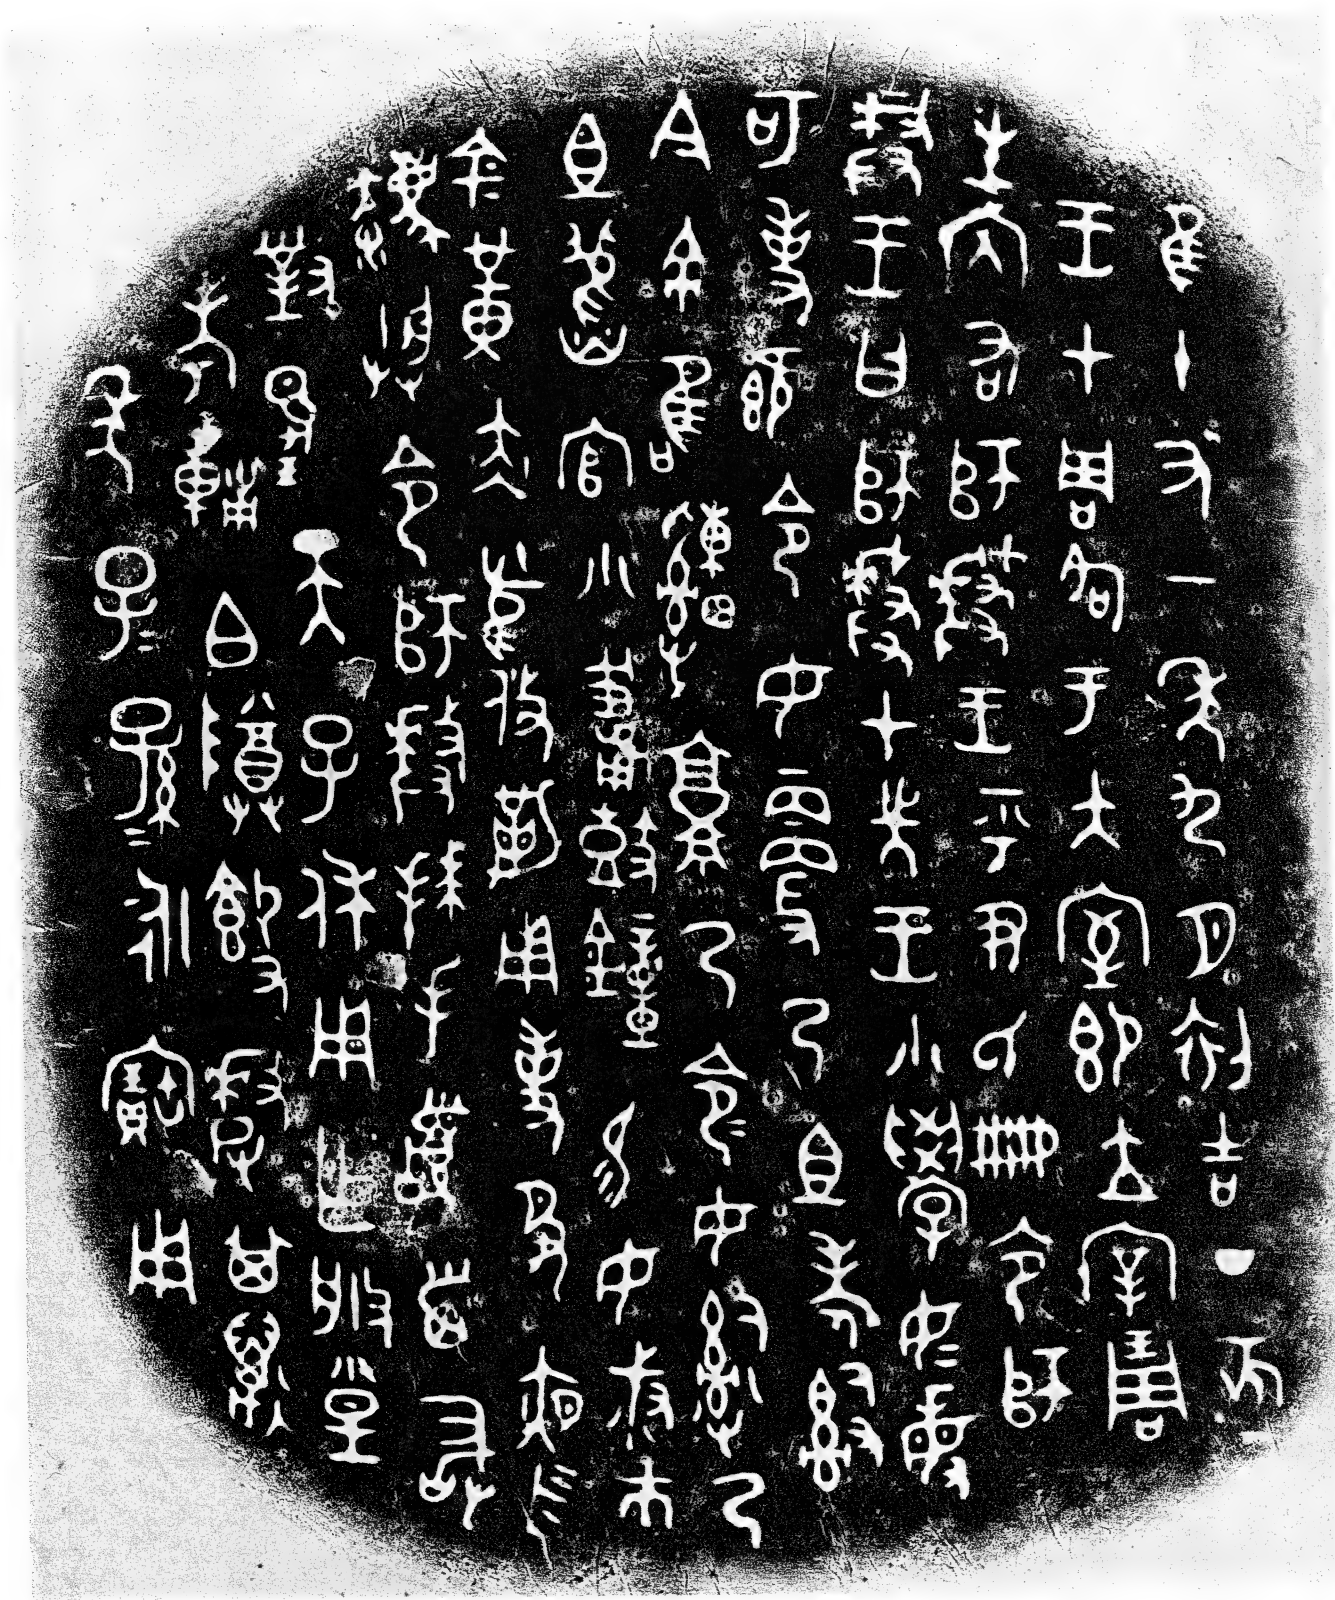 隹十又一年九月初吉丁亥
王才周各于大室即立宰琱
生內右師嫠王乎尹氏冊令師
嫠王曰師嫠才先王小學女敏
可事既令女更乃且考𤔲
今余隹䌛𩫨乃令令女𤔲乃
且舊官小輔鼓鐘易女叔巿
金黃赤舄攸勒用事敬夙夜
勿灋朕令師嫠拜手𩒨首敢
對揚天子休用乍朕皇
考輔白尊𣪘嫠其萬
年子子孫孫永寶用